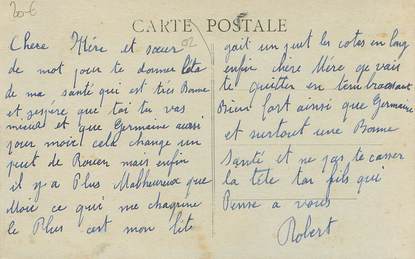 20€
CARTE POSTALE
Chere Mére et sœur
de mot pour te donner
de ma santé qui est trés Bonne
et j'espére que toi tu vas
mieux et que Germaine aussi
pour moi cela change un
peut de Rouen mais enfin
il y a Plus Malheureux que
Moi ce qui me chagrine
le Plus cest mon lite
gait un peut les cotes en long
enfin chère Mére je vais
te quitter en
Bien fort ainsi que Germaine
et surtout une Bonne
Santé et ne pas te casser
la tête ton fils qui
Pense a vous
Robert